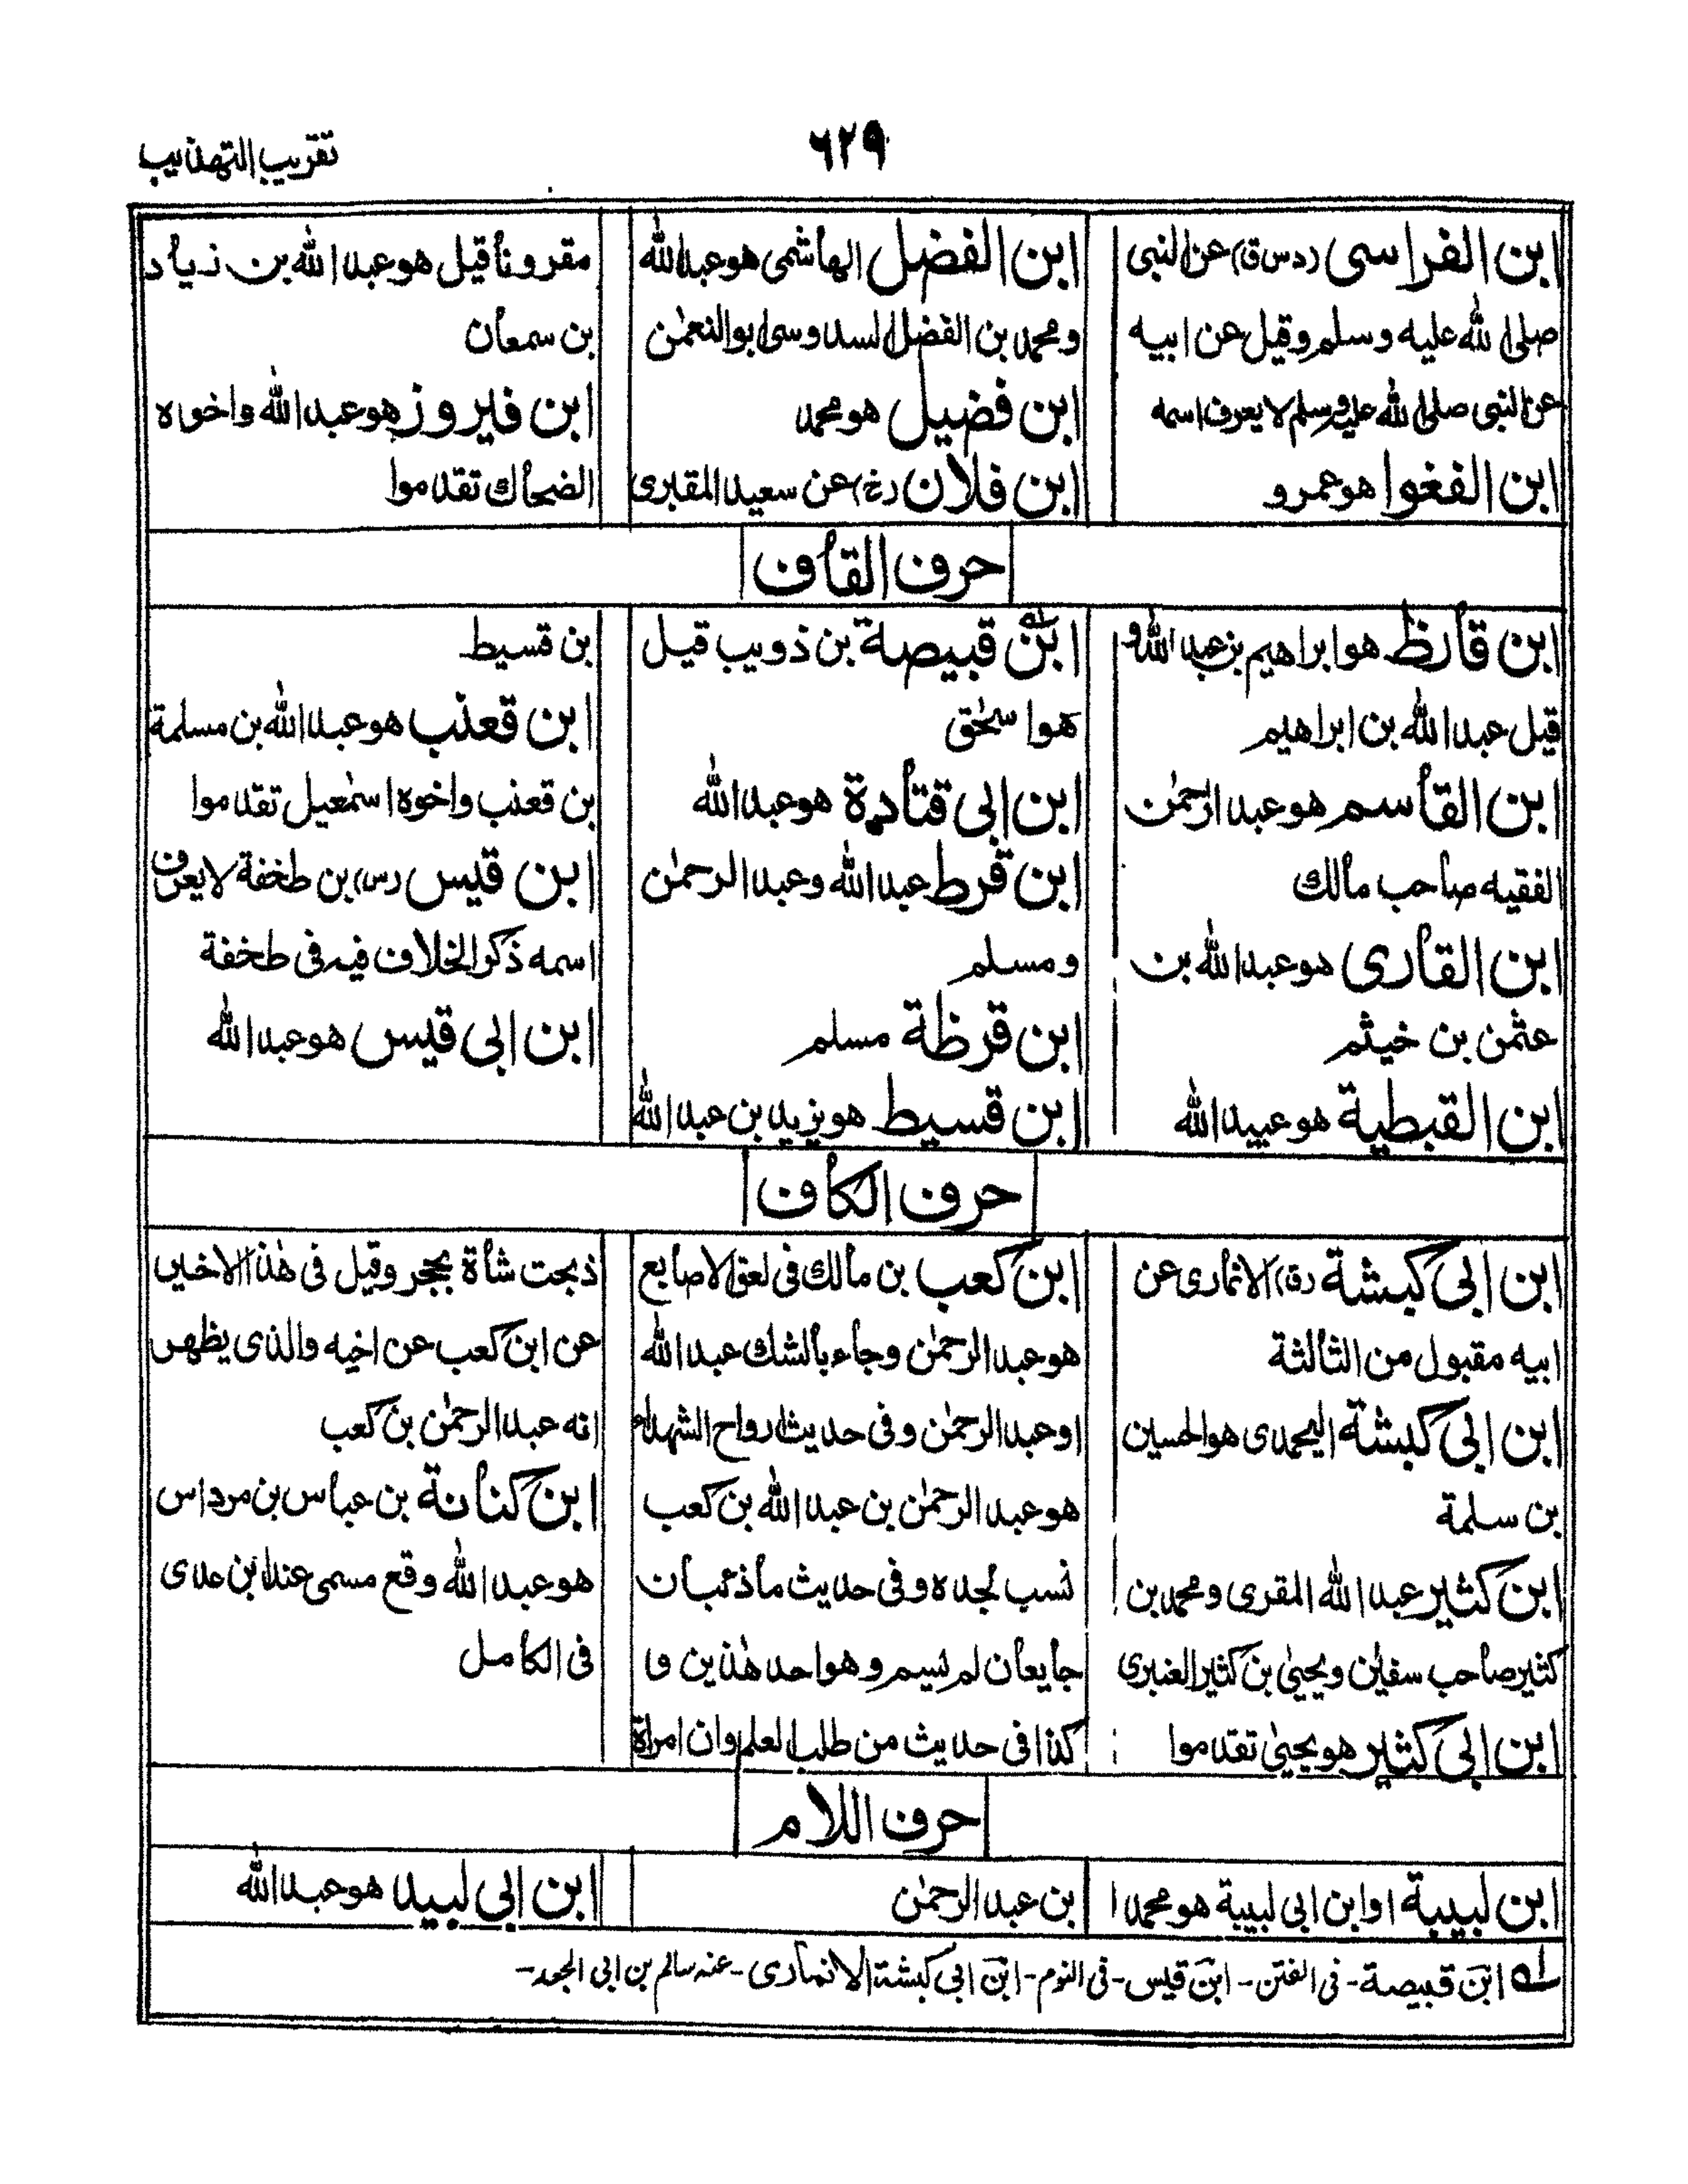 تقريب التهذيب
٦٢٩
ابن الفراسى (د س ق) عن النبى
صلى الله عليه وسلم وقيل عن ابيه
عن النبى صلى الله عليه وسلم لا يعرف اسمه
ابن الفغوا هو عمرو
ابن الفضل الهاشمى هو عبد الله
ومحمد بن الفضل السدوسى ابو النعمٰن
ابن فضيل هو محمد
ابن فلان (خ) عن سعيد المقبرى
مقرونا قيل هو عبد الله بن زياد
بن سمعان
ابن فيروز هو عبد الله واخواه
الضحاك تقدموا
حرف القاف
ابن قارظ هو ابراهيم بن عبد الله و
قيل عبد الله بن ابراهيم
ابن القاسم هو عبد الرحمٰن
الفقيه صاحب مالك
ابن القارى هو عبد الله بن
عثمٰن بن خيثم
ابن القبطية هو عبيد الله
ابن قبيصة بن ذويب قيل
هو اسحٰق
ابن ابى قتادة هو عبد الله
ابن قرط عبد الله وعبد الرحمٰن
ومسلم
ابن قرظة مسلم
ابن قسيط هو يزيد بن عبد الله
بن قسيط
ابن قعنب هو عبد الله بن مسلمة
بن قعنب واخوه اسمٰعيل تقدموا
ابن قيس (س) بن طخفة لا يعرف
اسمه ذكر الخلاف فيه فى طخفة
ابن ابى قيس هو عبد الله
حرف الكاف
ابن ابى كبشة (ق) الانمارى عن
ابيه مقبول من الثالثة
ابن ابى كبشة اليحمدى هو الحسين
بن سلمة
ابن كثير عبد الله المقرى ومحمد بن
كثير صاحب سفيٰن ويحيىٰ بن كثير العنبرى
ابن ابى كثير هو يحيىٰ تقدموا
ابن كعب بن مالك فى لعق الاصابع
هو عبد الرحمٰن وجاء بالشك عبد الله
او عبد الرحمٰن وفى حديث ارواح الشهداء
هو عبد الرحمٰن بن عبد الله بن كعب
نسب لجده وفى حديث ما ذئبان
جايعان لم يسم وهو احد هٰذين و
كذا فى حديث من طلب العلم وان امراة
ذبحت شاة بحجر وقيل فى هٰذا الاخير
عن ابن كعب عن اخيه والذى يظهر
انه عبد الرحمٰن بن كعب
ابن كنانة بن عباس بن مرداس
هو عبد الله وقع مسمى عند ابن عدى
فى الكامل
حرف اللام
ابن لبيبة او ابن ابى لبيبة هو محمد
بن عبد الرحمٰن
ابن ابى لبيد هو عبد الله
ا؎ ابن قبيصة - فى الفتن - ابن قيس - فى النوم - ابن ابى كبشة الانمارى - عنه سالم بن ابى الجعد -